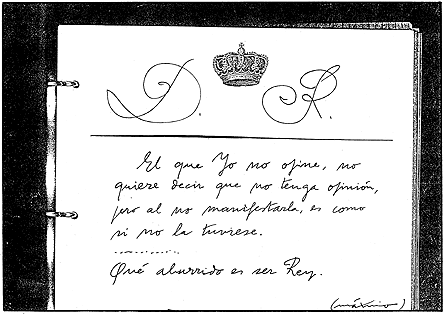 D. R.
El que Yo no opine, no
quiere decir que no tenga opinión,
pero al no manifestarla, es como
si no la tuviese.
............
Qué aburrido es ser Rey.
(máximo)